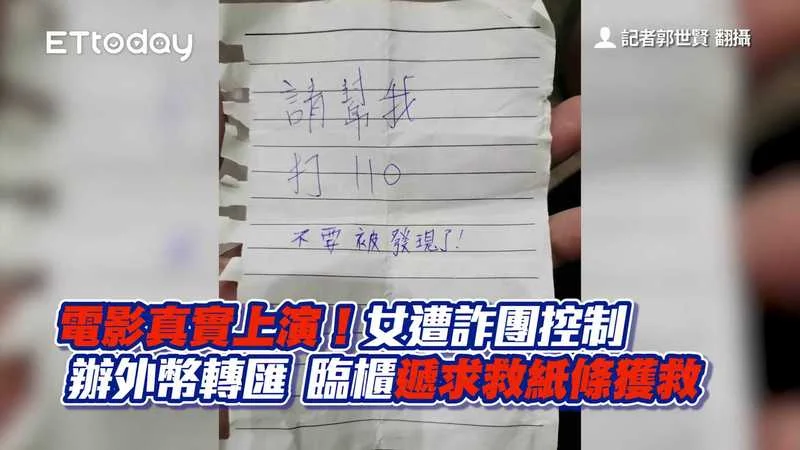 ETtoday
記者郭世賢 翻攝
請幫我
打 110
不要被發現了!
電影真實上演!女遭詐團控制
辦外幣轉匯 臨櫃遞求救紙條獲救